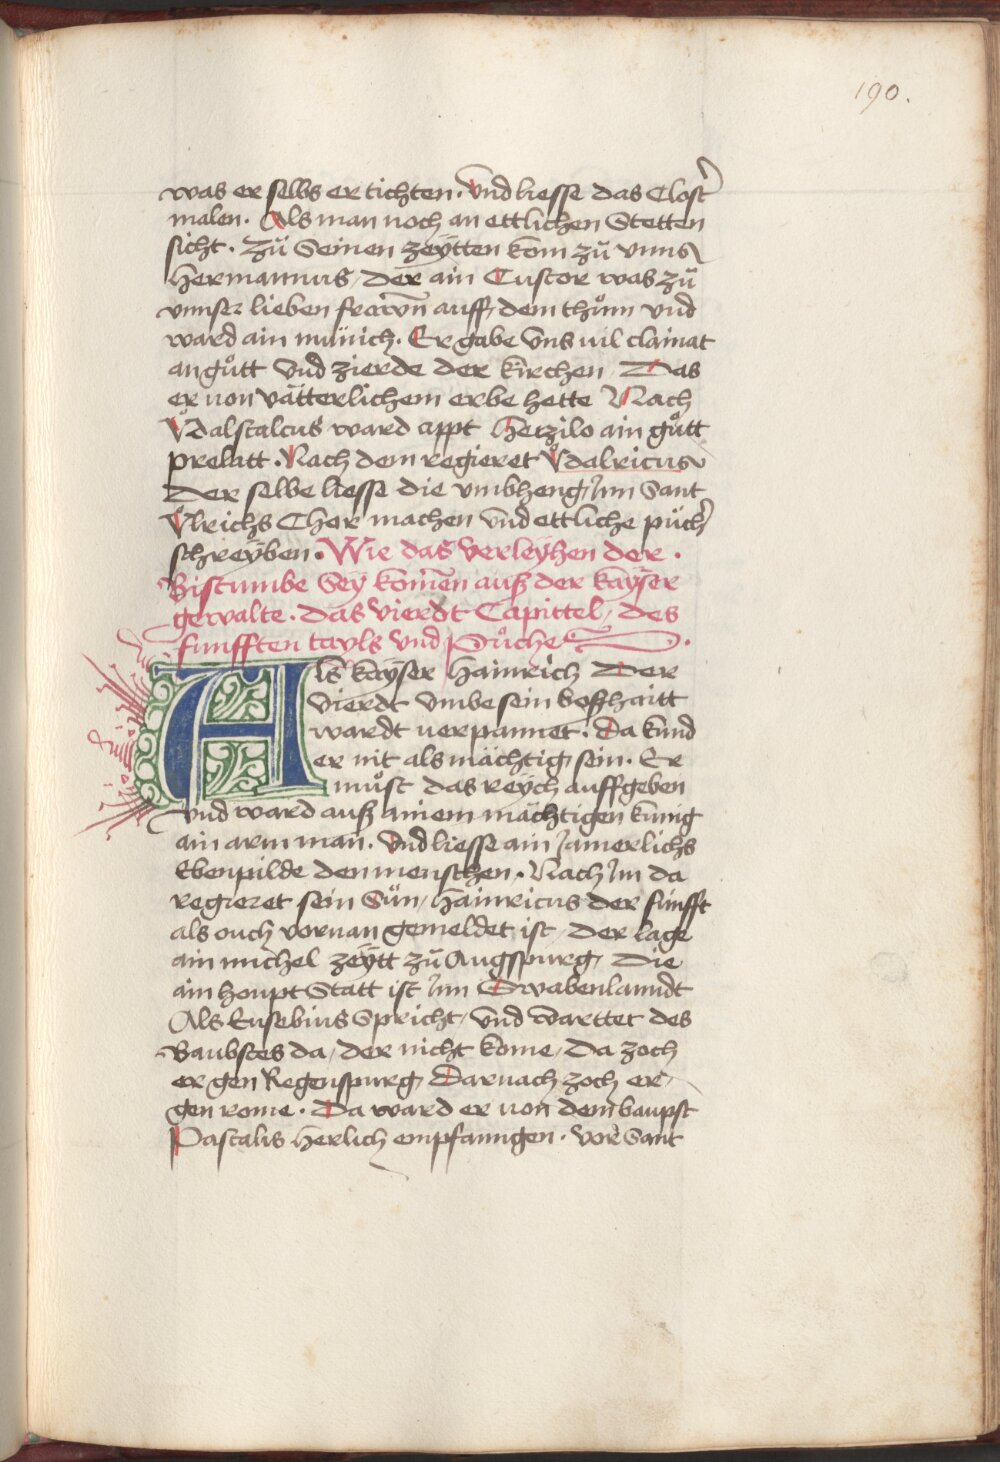 190.
was er selbs ertichten. Vnd liesse das Clost̉
malen. Als man noch an ettlichen Stetten
sicht. Zů Seinen zeÿtten kom zů vnns
Hermannus, der ain Custor was zů
vnnser lieben frawn̄ auff dem thům vnd
ward ain münich. Er gabe vns vil clainat
an gůtt vnd zierde der kirchen Das
er von vätterlichem erbe hette Nach
Vͦdalscalcus ward appt Hetzilo ain gůtt
prelatt. Nach dem regieret Vͦdalricus
Der selbe liesse die vmbheng Jnn Sant
Vͦlrichs Chor machen vnd ettliche püch̉
schreÿben. Wie das verleÿhen der.
Bistumbe Seÿ kom̄en auß der kaÿser
gewalte. das vierdt Capittel, des
funfften tayls vnd Půchs.
Als kaÿser Hainrich Der
vierdt vmbe sein boßhaitt
wardt verpannet. Da kund
er nit als mächtig sein. Er
můst das reÿch auffgeben
vnd ward auß ainem mächtigen künig
ain arm man. Vnd liesse ain Jamerlichs
Ebenpilde den menschen. Nach Jm da
regieret sein Sün, Hainricus der fünfft
als ouch vornan gemeldet ist, der lage
ain michel zeÿtt zů Augspurg, Die
ain houpt Statt ist Jnn Swabenlanndt
Als Eusebius Spricht, vnd warttet des
Baubstes da, der nicht kome, Da zoch
er gen Regenspurg, Darnach zoch er,
gen rome. Da ward er von dem baupst
Pascalis herlich empfanngen. vor Sant